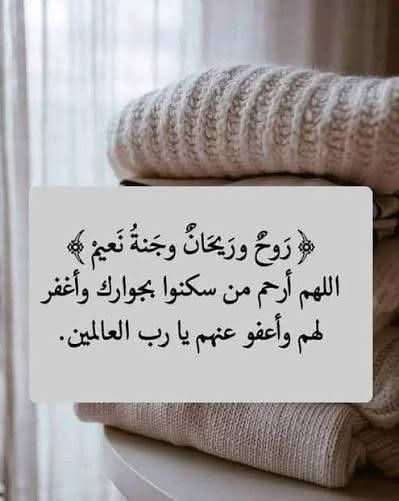 ﴿ رَوحٌ ورَيحَانٌ وجَنةُ نَعيمْ ﴾
اللهم أرحم من سكنوا بجوارك وأغفر
لهم وأعفو عنهم يا رب العالمين.